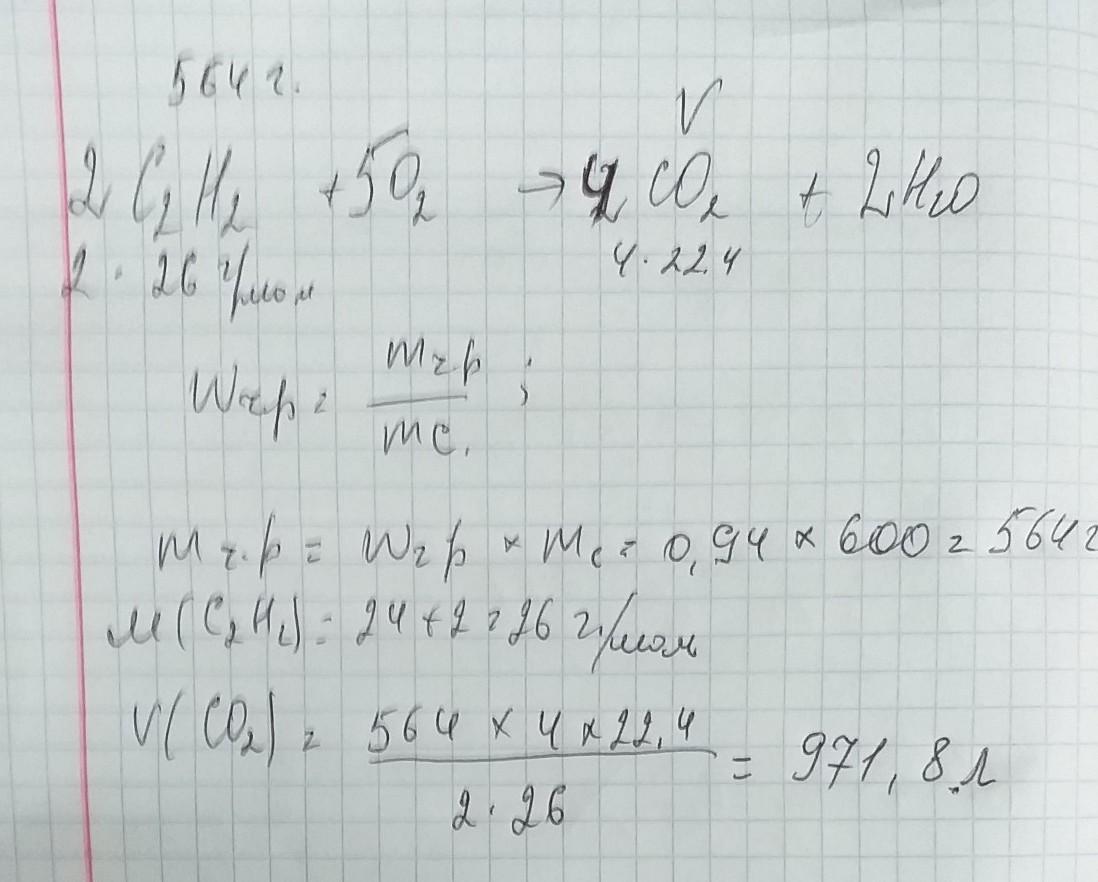 564 г.
V
2 C₂H₂ + 5O₂ → 4 CO₂ + 2H₂O
2 · 26 г/моль 4 · 22.4
Wч.р = mч.р / mс. ;
mч.р = Wчр × mс = 0,94 × 600 = 564 г
M(C₂H₂) = 24 + 2 = 26 г/моль
V(CO₂) = 564 × 4 × 22,4 / 2 · 26 = 971,8 л